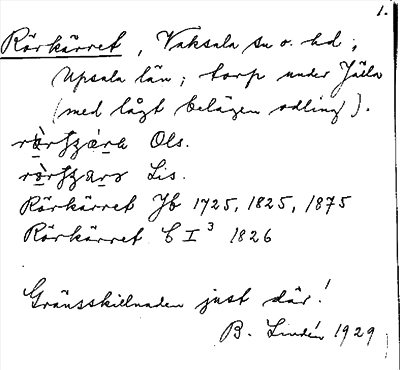 1.
Rörkärret, Vaksala sn o. hd;
Upsala län; torp under Jälla
(med lågt belägen odling).
Ols.
Lis.
Rörkärret Jb 1725, 1825, 1875
Rörkärret C I 3 1826
Gränsskillnaden just där!
B. Lindén 1929